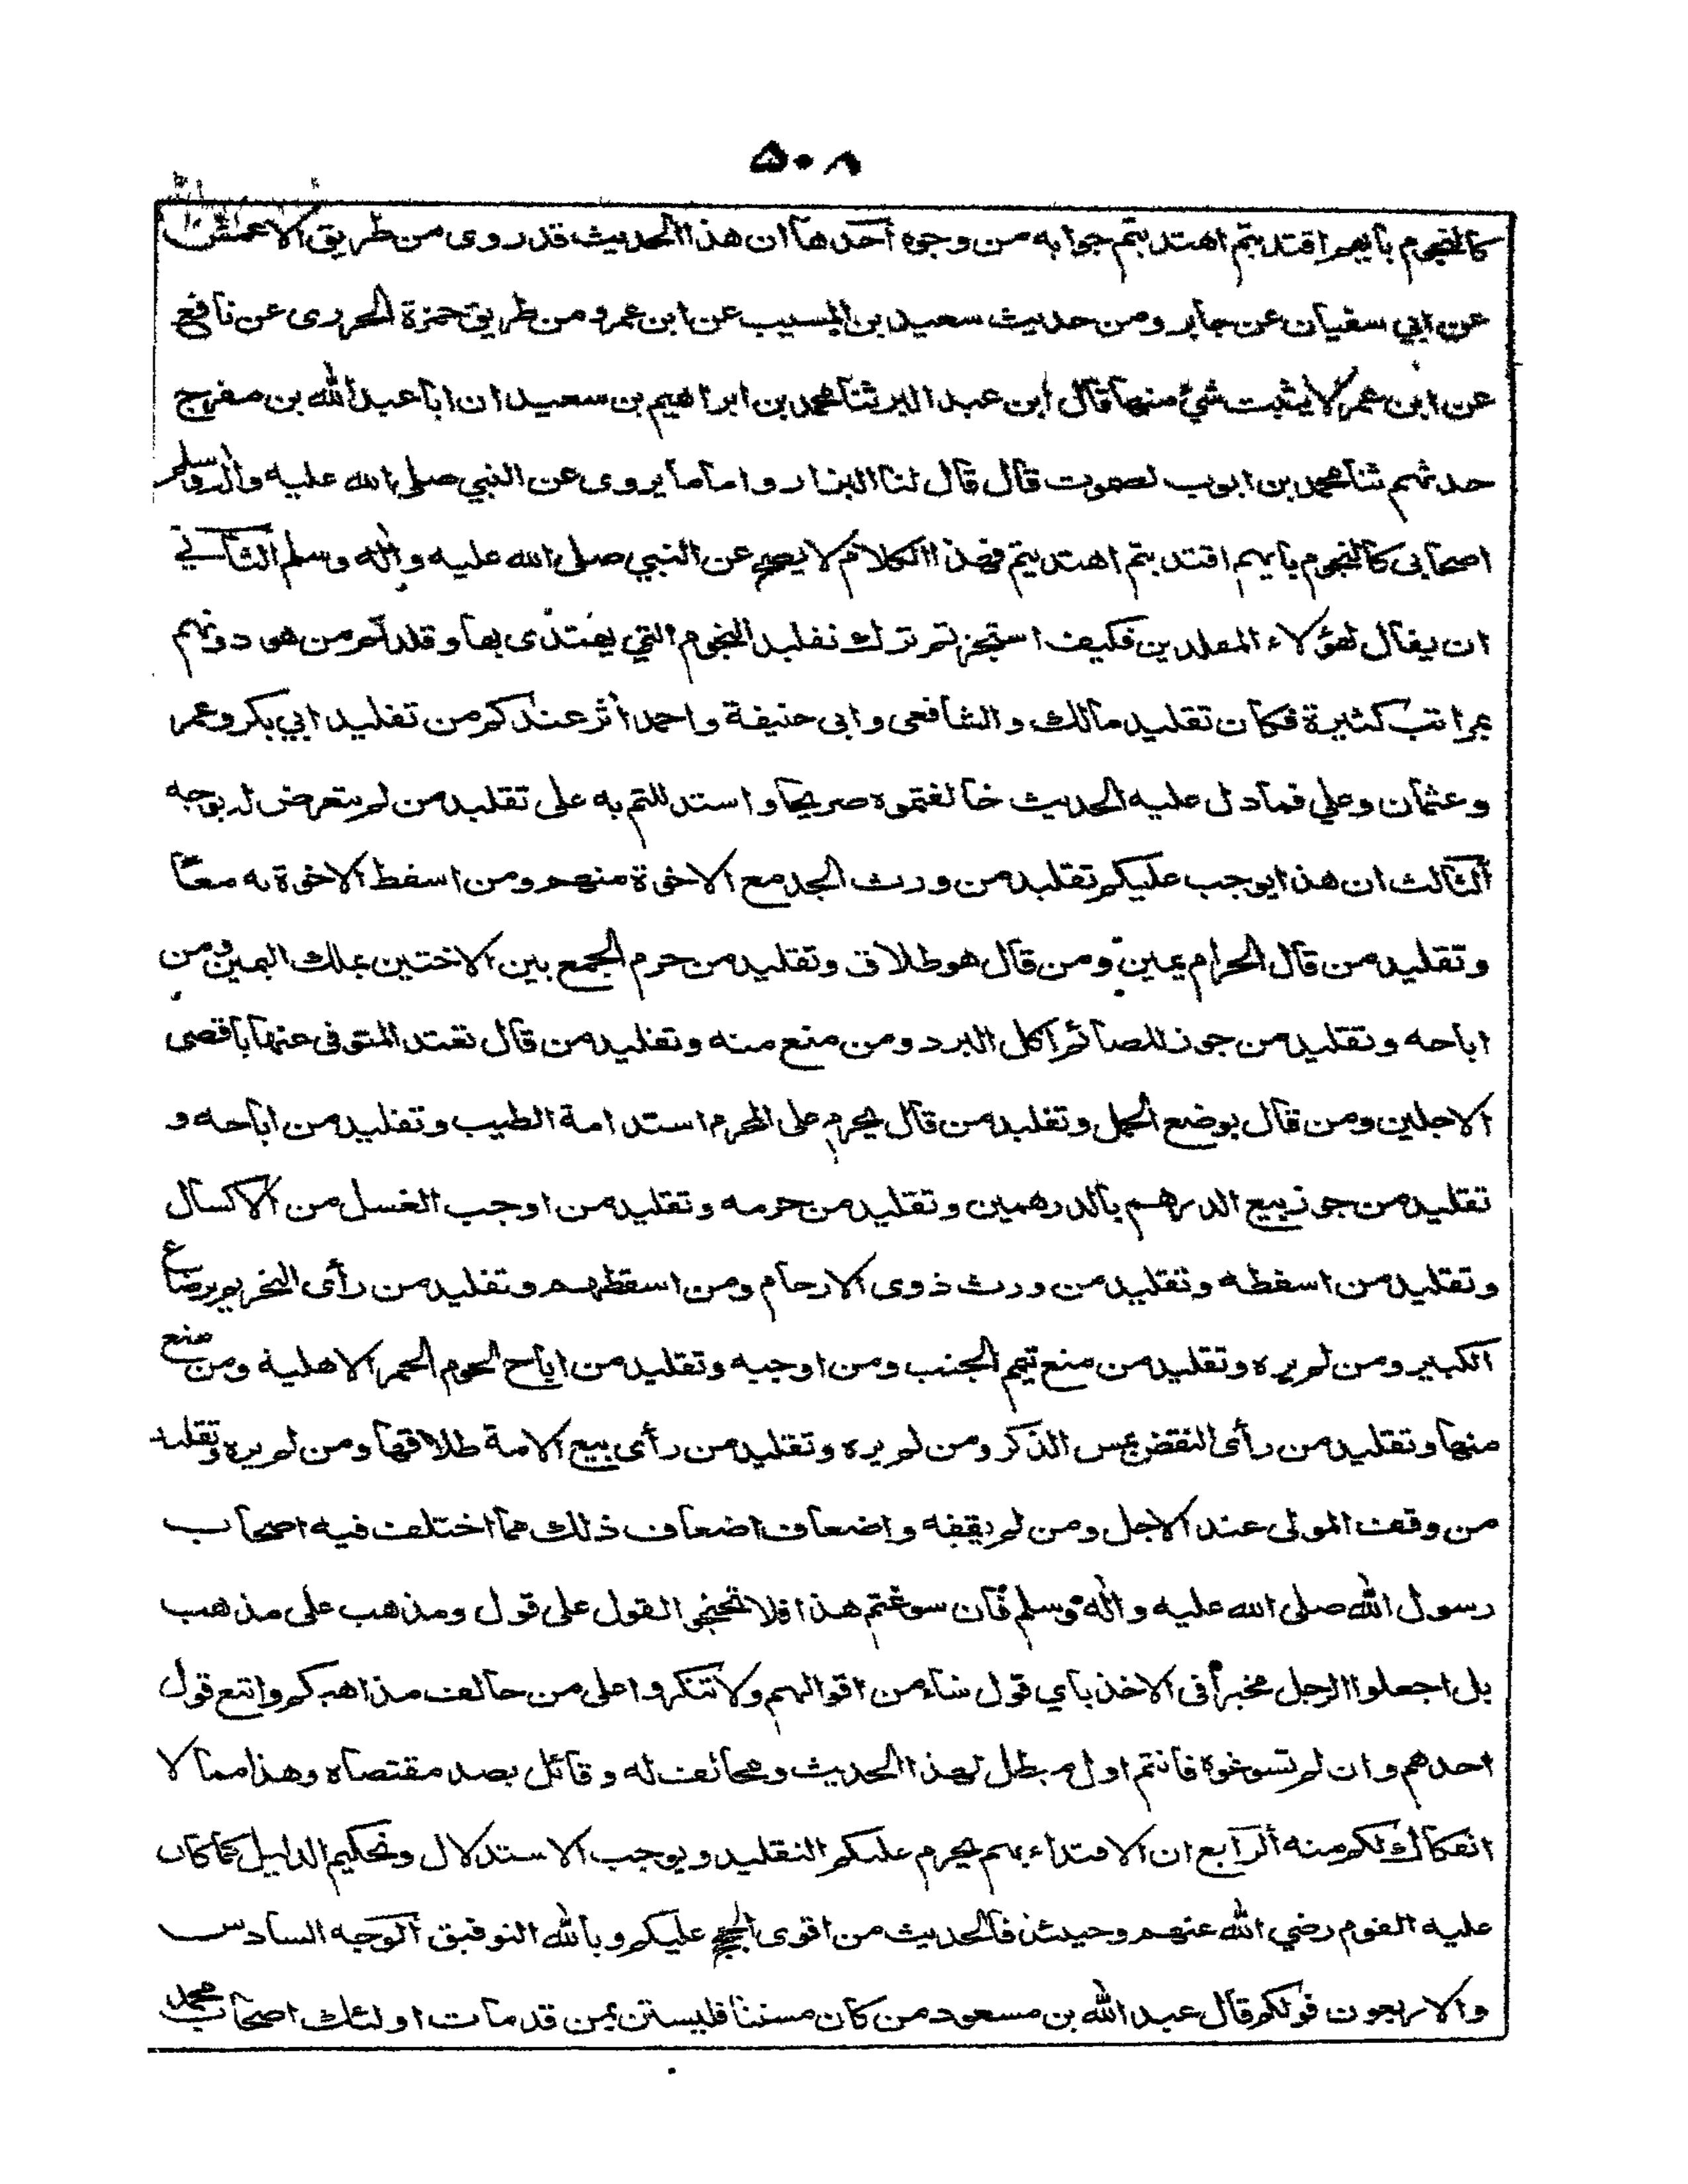 ۵۰۸
كالنجوم بايهم اقتديتم اهتديتم جوابه من وجوه أحدها ان هذا الحديث قد روى من طريق الاعمش
عن ابي سفيان عن جابر ومن حديث سعيد بن المسيب عن ابن عمر ومن طريق حمزة الجزرى عن نافع
عن ابن عمر لا يثبت شئ منها قال ابن عبد البر ثنا محمد بن ابراهيم بن سعيد ان ابا عبد الله بن مفرج
حدثهم ثنا محمد بن ايوب لصموت قال قال لنا البزار واما ما يروى عن النبي صلى الله عليه واله وسلم
اصحابى كالنجوم بايهم اقتديتم اهتديتم فهذا الكلام لا يصح عن النبي صلى الله عليه واله وسلم الثاني
ان يقال لهؤلاء المقلدين فكيف استجزتم ترك تقليد النجوم التي يهتدى بها وقلدتم من هو دونهم
بمراتب كثيرة فكان تقليد مالك والشافعى وابى حنيفة واحمد اثر عندكم من تقليد ابي بكر وعمر
وعثمان وعلي فما دل عليه الحديث خالفتموه صريحا واستدللتم به على تقليد من لم يتعرض له بوجه
الثالث ان هذا يوجب عليكم تقليد من ورث الجد مع الاخوة منهم ومن اسقط الاخوة به معا
وتقليد من قال الحرام يمين ومن قال هو طلاق وتقليد من حرم الجمع بين الاختين بملك اليمين ومن
اباحه وتقليد من جوز للصائم اكل البرد ومن منع منه وتقليد من قال تعتد المتوفى عنها باقصى
الاجلين ومن قال بوضع الحمل وتقليد من قال يحرم على المحرم استدامة الطيب وتقليد من اباحه و
تقليد من جوز بيع الدرهم بالدرهمين وتقليد من حرمه وتقليد من اوجب الغسل من الاكسال
وتقليد من اسقطه وتقليد من ورث ذوى الارحام ومن اسقطهم وتقليد من رأى التحريم برضاع
الكبير ومن لم يره وتقليد من منع تيمم الجنب ومن اوجبه وتقليد من اباح لحوم الحمر الاهلية ومن منع
منها وتقليد من رأى النقض بمس الذكر ومن لم يره وتقليد من رأى بيع الامة طلاقها ومن لم يره وتقليد
من وقف المولى عند الاجل ومن لم يقفه واضعاف اضعاف ذلك مما اختلف فيه اصحاب
رسول الله صلى الله عليه واله وسلم فان سوغتم هذا فلا تحتجوا القول على قول ومذهب على مذهب
بل اجعلوا الرجل مخيرا فى الاخذ باي قول شاء من اقوالهم ولا تنكروا على من خالف مذاهبكم واتبع قول
احدهم وان لم تسوغوه فانتم اول مبطل لهذا الحديث ومخالف له وقائل بضد مقتضاه وهذا مما لا
انفكاك لكم منه الرابع ان الاقتداء بهم يحرم عليكم التقليد ويوجب الاستدلال وتحكيم الدليل كما كان
عليه القوم رضي الله عنهم وحينئذ فالحديث من اقوى الحجج عليكم وبالله التوفيق الوجه السادس
والاربعون قولكم قال عبد الله بن مسعود من كان مستنا فليستن بمن قد مات اولئك اصحاب محمد